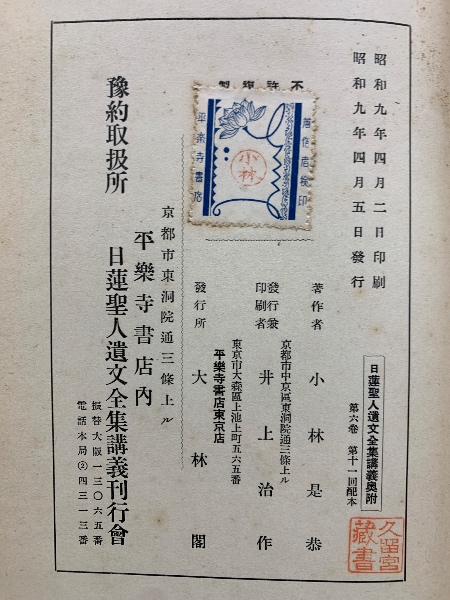 昭和九年四月二日印刷
昭和九年四月五日發行
不許複製
著作者檢印
小林
平樂寺書店
日蓮聖人遺文全集講義奥附
第六卷 第十一回配本
著作者 小林是恭
京都市中京區東洞院通三條上ル
發行兼印刷者 井上治作
東京市大森區上池上町五六五番
平樂寺書店東京店
發行所 大林閣
京都市東洞院通三條上ル
平樂寺書店內
豫約取扱所 日蓮聖人遺文全集講義刊行會
振替大阪一三〇六五番
電話本局②四三一三番
久留宮藏書